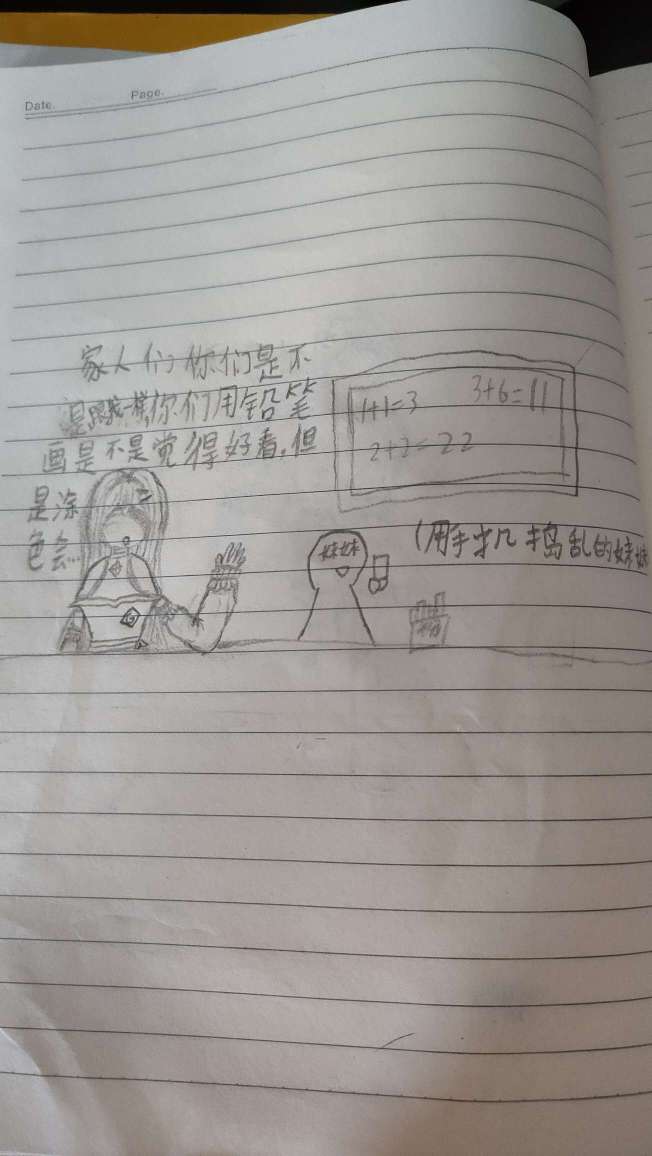 Date.
Page.
家人们你们是不
是跟我一样你们用铅笔
画是不是觉得好看，但
是涂
色会...
1+1=3
3+6=11
2+2=22
妹妹
(用手机捣乱的妹妹